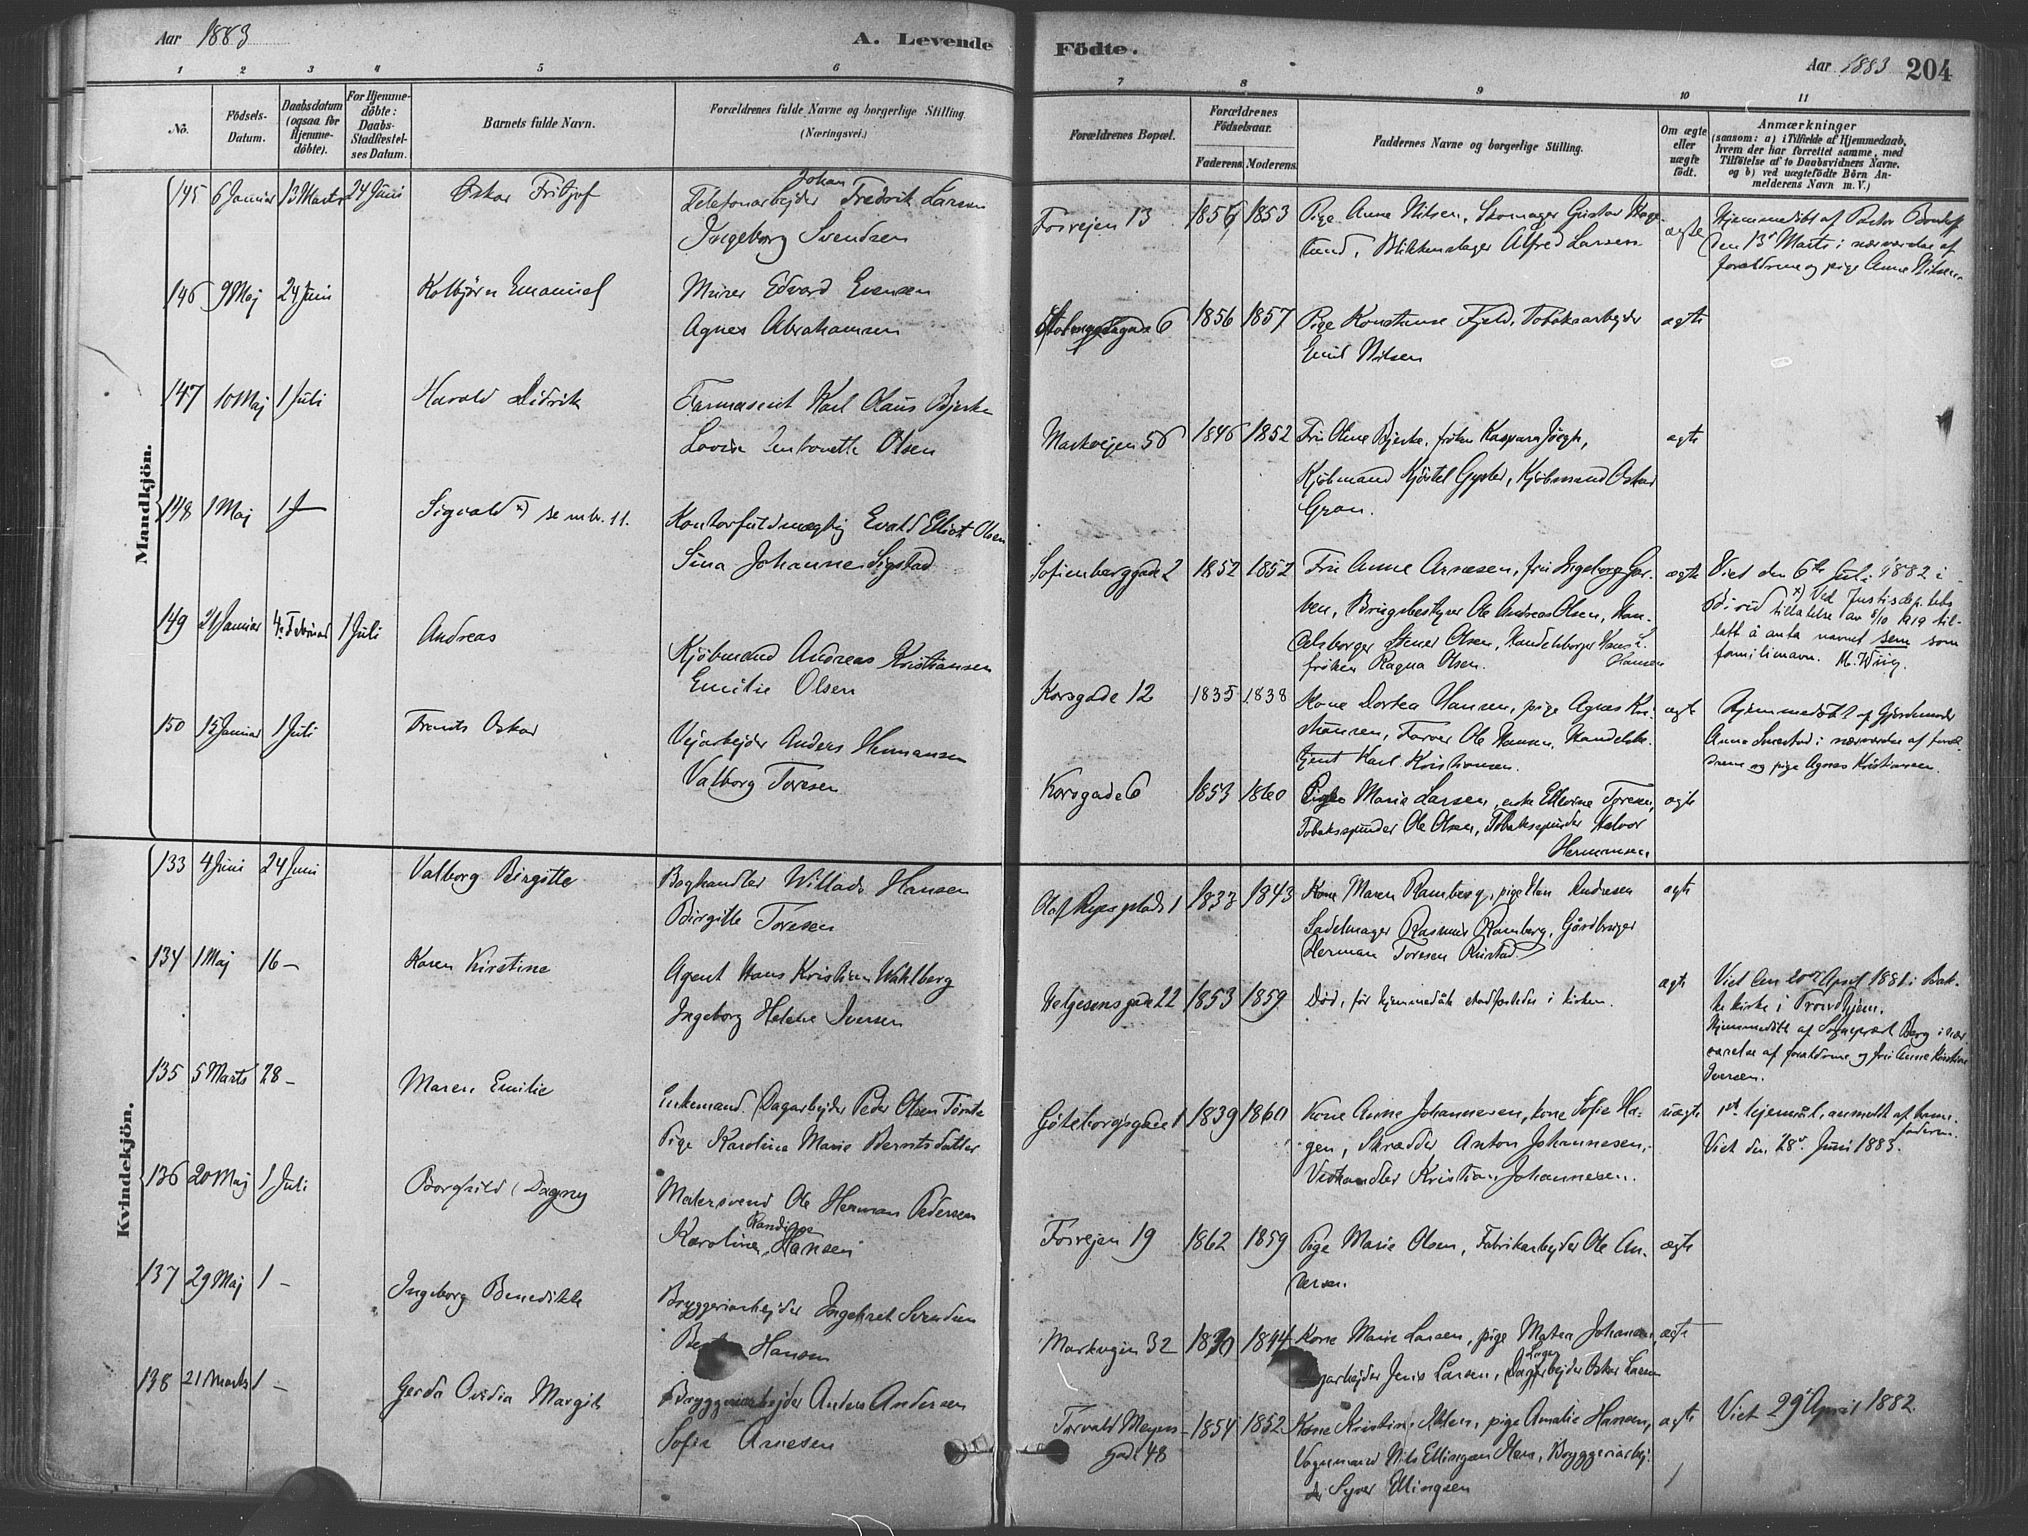 Aar 1883
A. Levende
Födte.
Aar 1883 204
1 2 3 4 5 6 7 8 9 10 11
No.
Födsels-Datum.
Daabsdatum (ogsaa for Hjemmedöbte).
For Hjemmedöbte: Daabs-Stadfæstelses Datum.
Barnets fulde Navn.
Forældrenes fulde Navne og borgerlige Stilling.
(Næringsvei.)
Forældrenes Bopæl.
Forældrenes Födselsaar.
Faderens. Moderens.
Faddernes Navne og borgerlige Stilling.
Om ægte eller uægte födt.
Anmærkninger
(saasom: a) i Tilfælde af Hjemmedaab, hvem der har forrettet samme, med Tilföielse af to Daabsvidners Navne. og b) ved uægtefödte Börn Anmelderens Navn m. V.)
Mandkjön.
145 6 Januar 13 Marts 24 Juni Oskar Fritjof
Telefonarbejder Johan Fredrik Larsen
Ingeborg Svendsen
Fosvejen 13 1856 1853
Pige Anne Nilsen, Skomager Gustav
Blikkenslager Alfred Larsen
ægte
Hjemmedöbt af Pastor
den 13de Marts i nærværelse af
forældrene og pige Anne Nilsen.
146 9 Maj 24 Juni Kolbjörn Emanuel
Murer Edvard Evensen
Agnes Abrahamsen
6 1856 1857
Pige Konstanse Fjeld, Tobaksarbejder
Emil Nilsen
ægte
147 10 Maj 1 Juli Harald Didrik
Farmaseut Karl Olaus Bjerke
Lovise Olsen
Markvejen 56 1846 1852
Fru Oline Bjerke, fröken Kaspara
Kjöbmand Kjöstel Kjöbmand Oskar
Gran.
ægte
148 1 Maj 1 Sigvald x) se mrk. 11.
Kontorfuldmægtig Evald Elliot Olsen
Sina Johanne Sigstad
Sofienberggade 2 1852 1852
Fru Anne Arnesen, fru Ingeborg Gar-
ben, Brugsbestyrer Ole Andreas Olsen, Han-
delsborger Stener Olsen, Handelsborger Hans L. Hansen
fröken Ragna Olsen.
ægte
Viet den 6te Juli 1882 i
Birid x) Ved Justisdep.tets
tilladelse av 8/10 1919 til-
latt å anta navnet Sem som
familienavn. M. Wiig.
149 21 Januar 4. Februar 1 Juli Andreas
Kjöbmand Andreas Kristiansen
Emilie Olsen
Korsgade 12 1835 1838
Kone Dortea Hansen, pige Agnes Kri-
stiansen, Farver Ole Hansen, Handels-
Karl Kristiansen.
ægte
Hjemmedöbt af Gjordemoder
Anna Smestad i nærværelse af foræl-
drene og pige Agnes Kristiansen.
150 15 Januar 1 Juli Frants Oskar
Vejarbejder Anders Hermansen
Valborg Toresen
Korsgade 6 1853 1860
Pige Marie Larsen, enke Toresen,
Tobaksspinder Ole Olsen, Tobaksspinder Halvor
Hermansen
ægte
Kvindekjön.
133 4 Juni 24 Juni Valborg Birgitte
Boghandler Willads Hansen
Birgitte Toresen
Olaf Ryes plads 1 1833 1843
Kone Maren Ramberg, pige Andresen
Sadelmager Rasmus Ramberg, Gårdbruger
Herman Toresen Rustad
ægte
134 1 Maj 16 – Karen Kirstine
Agent Hans Kristian Wahlberg
Ingeborg Helene Iversen
Helgesensgade 22 1853 1859
Död, för hjemmedåb stadfæstedes i kirken.
ægte
Viet den 20de April 1881 i Bak-
ke kirke i Trondhjem.
Hjemmedöbt af Sogneprest Berg i nær-
værelse af forældrene og fru Anne Kirstine
Iversen.
135 5 Marts 28 – Maren Emilie
Enkemand Dagarbejder Peder Olsen
Pige Karoline Marie Berntsdatter
Göteborgsgade 1 1839 1860
Kone Anne Johannesen, kone Sofie Ha-
gen, Skrædder Anton Johannesen,
Vedhandler Kristian Johannesen.
uægte
1ste lejermål, anmeldt af barne-
faderen.
Viet den 28de Juni 1883.
136 20 Maj 1 Juli Borghild Dagny
Malersvend Ole Herman Pedersen
Karoline Randine Hansen
Fosvejen 19 1862 1859
Pige Marie Olsen, Fabrikarbejder Ole An-
dersen.
ægte
137 29 Maj 1 – Ingeborg Benedikte
Bryggeriarbejder Ingebret Svendsen
Hansen
Markvejen 32 1830 1844
Kone Marie Larsen, pige Matea Johansen,
arbejder Jens Larsen, Lagerarbejder Oskar Larsen
ægte
138 21 Marts 1 – Gerda Ovidia Margit
Bryggeriarbejder Anders Andersen
Sofie Arnesen
Torvald Meyers
gade 48 1854 1852
Kone Kristine Olsen, pige Amalie Hansen,
Vognmand Nils Ellingsen Bryggeriarbej-
der Syver Ellingsen
ægte
Viet 29de April 1882.